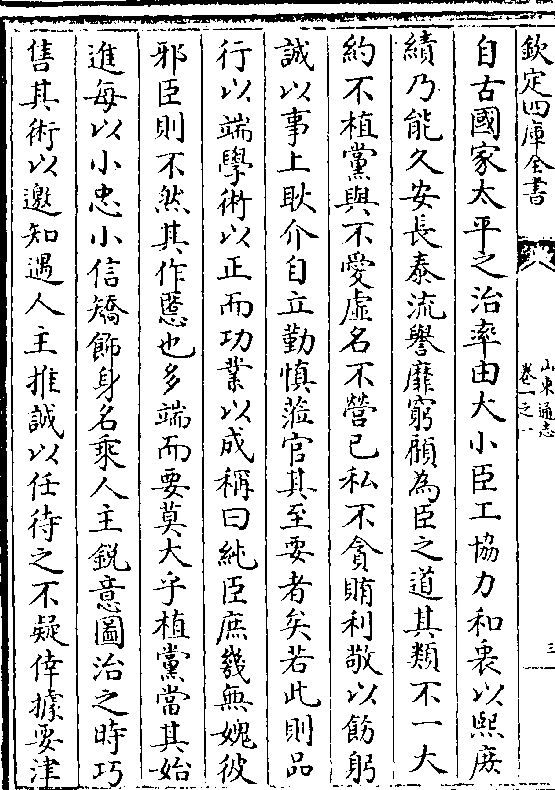 欽定四庫全書
山東通志
卷一之一
三
自古國家太平之治率由大小臣工協力和衷以熙庶
績乃能久安長泰流譽靡窮顧為臣之道其類不一大
約不植黨與不愛虛名不營已私不貪賄利敬以飭躬
誠以事上耿介自立勤慎蒞官其至要者矣若此則品
行以端學術以正而功業以成稱曰純臣庶幾無媿彼
邪臣則不然其作慝也多端而要莫大乎植黨當其始
進每以小忠小信矯飾身名乘人主銳意圖治之時巧
售其術以邀知遇人主推誠以任待之不疑倖據要津